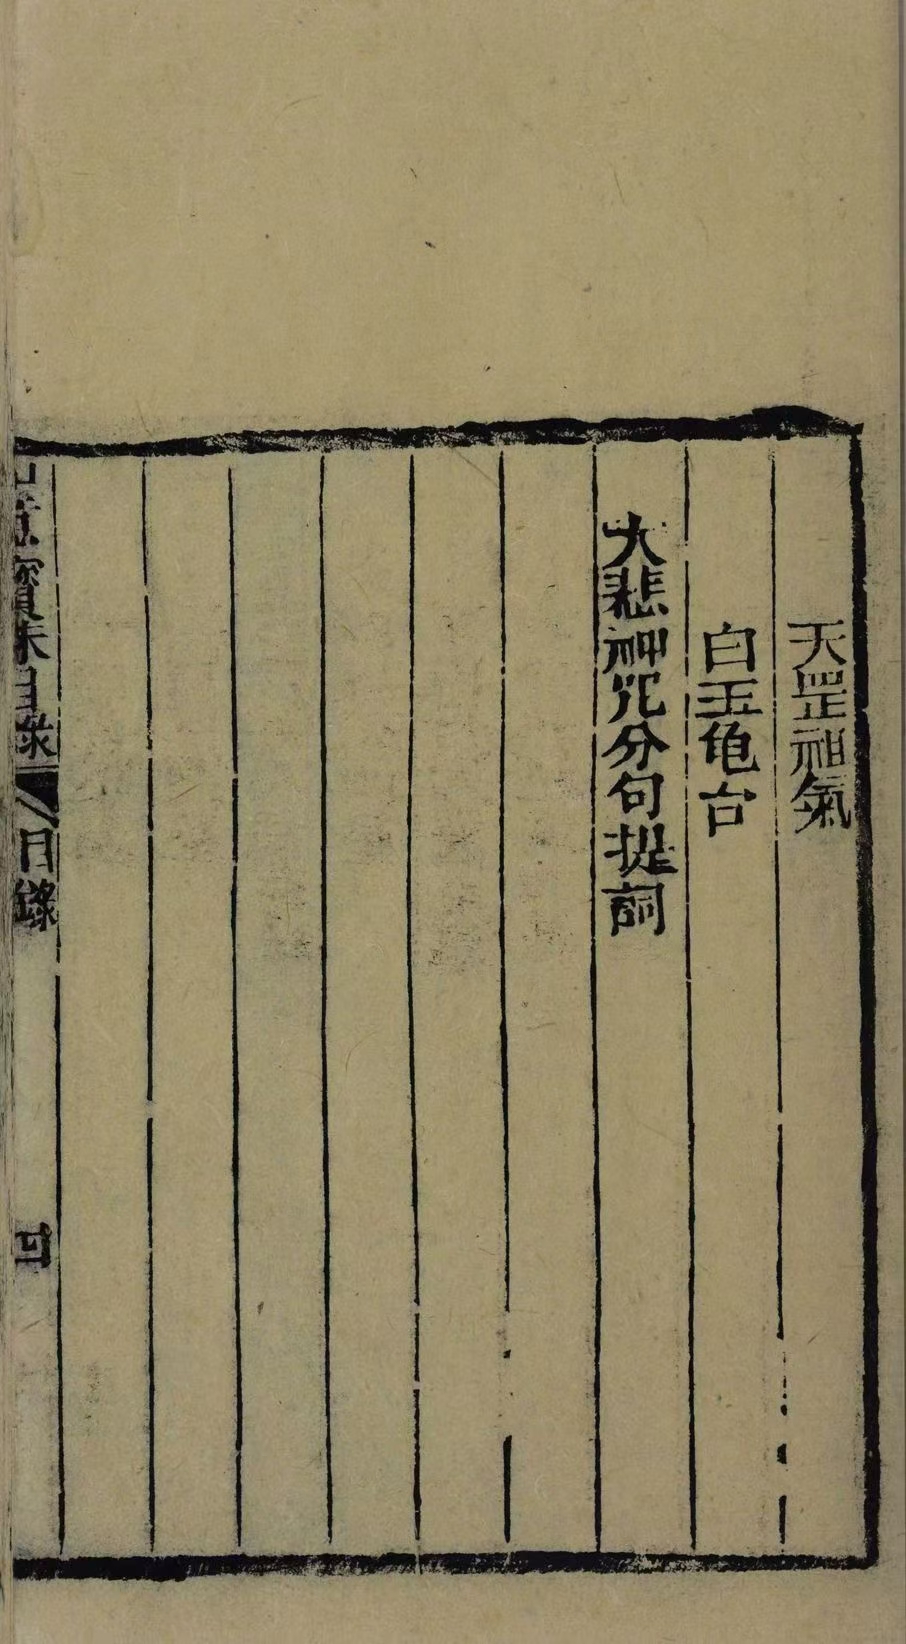 天罡祖氣
白玉龟台
大悲神咒分句提詞
寳珠目錄
目錄
四